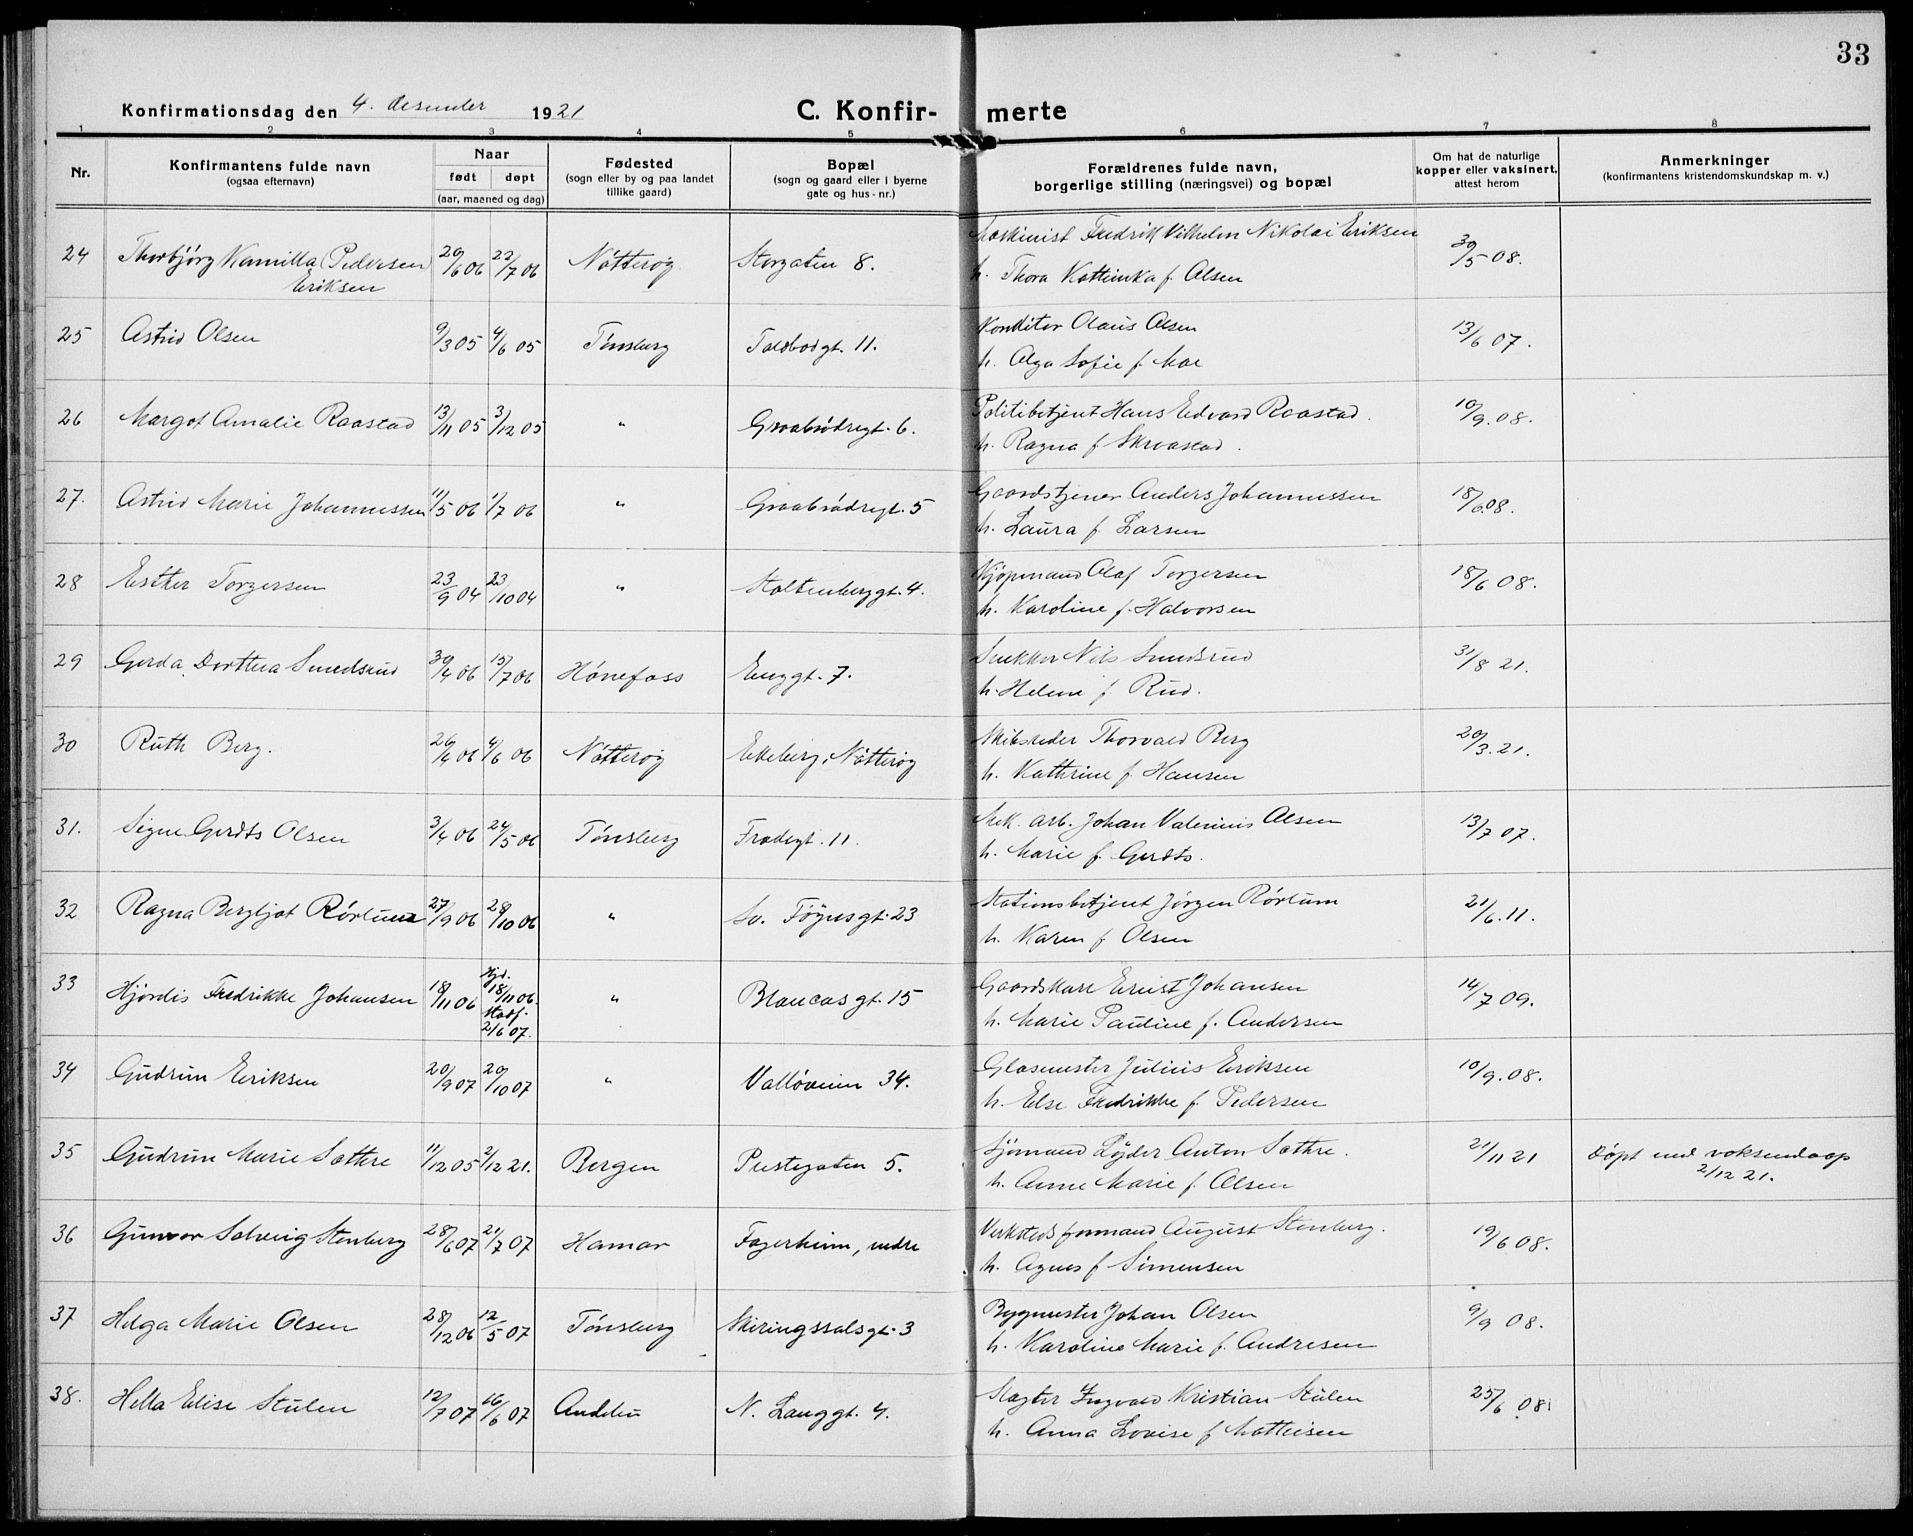 33
Konfirmationsdag den 4. desember 1921 C. Konfir- merte
1 2 3 4 5 6 7 8
Nr. Konfirmantens fulde navn (ogsaa efternavn) Naar født døpt (aar, maaned og dag) Fødested (sogn eller by og paa landet tillike gaard) Bopæl (sogn og gaard eller i byerne gate og hus-nr.) Forældrenes fulde navn, borgerlige stilling (næringsvei) og bopæl Om hat de naturlige kopper eller vaksinert, attest herom Anmerkninger (konfirmantens kristendomskundskap m. v.)
24 Thorbjörg Kamilla (Pedersen) Eriksen 20/6 06 22/7 06 Nötterøy Storgaten 8. Maskinist Fredrik Vilhelm Nikolai Eriksen
h. Thora Kattinka f. Olsen 30/5 08.
25 Astrid Olsen 9/3 05 4/6 05 Tønsberg Toldbodgt. 11. Konditor Olaus Olsen
h. Olga Sofie f. Moe 13/6 07.
26 Margot Amalie Raastad 13/11 05 3/12 05 " Graabrødregt. 6. Politibetjent Hans Edvard Raastad.
h. Ragna f. Skraastad. 10/9. 08.
27. Astrid Marie Johannessen 11/5 06 1/7 06 " Graabrødregt. 5 Gaardstjener Anders Johannessen
h. Laura f. Larsen 18/6 08.
28 Esther Torgersen 23/9 04 23/10 04 " Stoltenberggt. 4. Kjøpmand Olaf Torgersen
h. Karoline f. Halvorsen 18/6 08.
29 Gerda Dorthea Smedsrud 30/4 06 15/7 06 Hönefoss Enggt. 7. Snekker Nils Smedsrud
h. Helene f. Rud. 31/8 21.
30 Ruth Berg. 26/4 06 4/6 06 Nötterøy Ekeberg, Nötterøy Skibsreder Thorvald Berg
h. Kathrine f. Hansen 20/3. 21.
31. Signe Gerdts Olsen 3/4 06 24/5 06 Tönsberg Frodegt. 11. Mek. arb. Johan Valerius Olsen
h. Marie f. Gerdts. 13/7 07.
32 Ragna Bergljot Rörtum 27/9 06 28/10 06 " Sv. Föynsgt. 23 Stationsbetjent Jörgen Rörtum
h. Karen f. Olsen 21/6. 11.
33 Hjördis Fredrikke Johansen 18/11 06 Hjd. 18/11 06. Stadf. 2/6 07. " Blancasgt. 15 Gaardskarl Ernst Johansen
h. Marie Pauline f. Andersen 14/7 09.
34 Gudrun Eriksen 20/9 07 20/10 07 " Valløveien 34. Glasmester Julius Eriksen
h. Else Fredrikke f. Pedersen 10/9. 08.
35 Gudrun Marie Sæthre 11/12 05 2/12 21. Bergen Prestegaten 5. Sjömand Anton Sæthre.
h. Anne Marie f. Olsen 21/11 21 Döpt med voksendaap 2/12 21.
36 Gunvor Solveig Stenberg 28/6 07 21/7 07 Hamar Fagerheim, nedre Verkstedsformand August Stenberg.
h. Agnes f. Simensen 19/6 08.
37 Helga Marie Olsen 28/12 06 12/5 07 Tönsberg Skiringssalsgt. 3 Bygmester Johan Olsen
h. Karoline Marie f. Andresen 9/9 08.
38. Hella Elise Stulen 12/7 07 16/6 07 Andebu N. Langgt. 4. Slagter Ingvald Kristian Stulen
h. Anna Lovise f. Mathisen 25/6 08